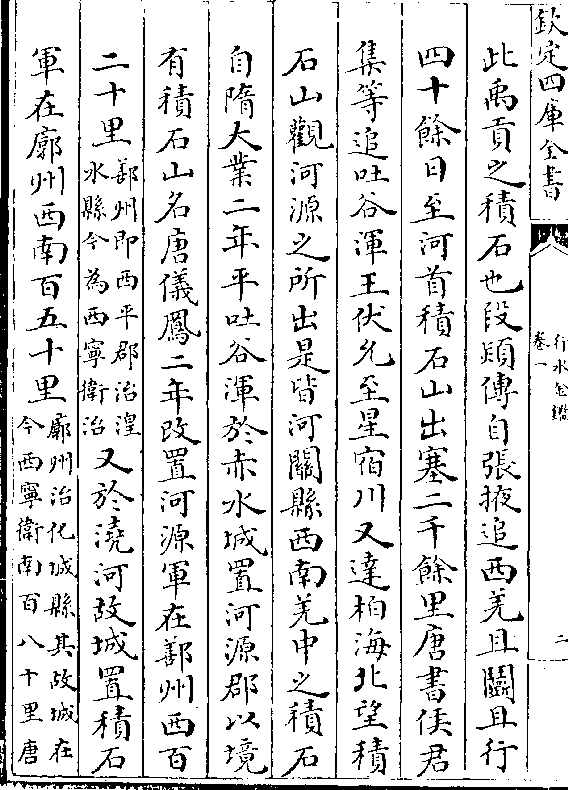 欽定四庫全書
行水金鑑
卷一
二
此禹貢之積石也段熲傳自張掖追西羌且鬭且行
四十餘日至河首積石山出塞二千餘里唐書侯君
集等追吐谷渾王伏允至星宿川又達柏海北望積
石山觀河源之所出是皆河關縣西南羌中之積石
自隋大業二年平吐谷渾於赤水城置河源郡以境
有積石山名唐儀鳳二年改置河源軍在鄯州西百
二十里鄯州即西平郡治湟
水縣今為西寧衛治又於澆河故城置積石
軍在廓州西南百五十里廓州治化城縣其故城在
今西寧衛南百八十里唐